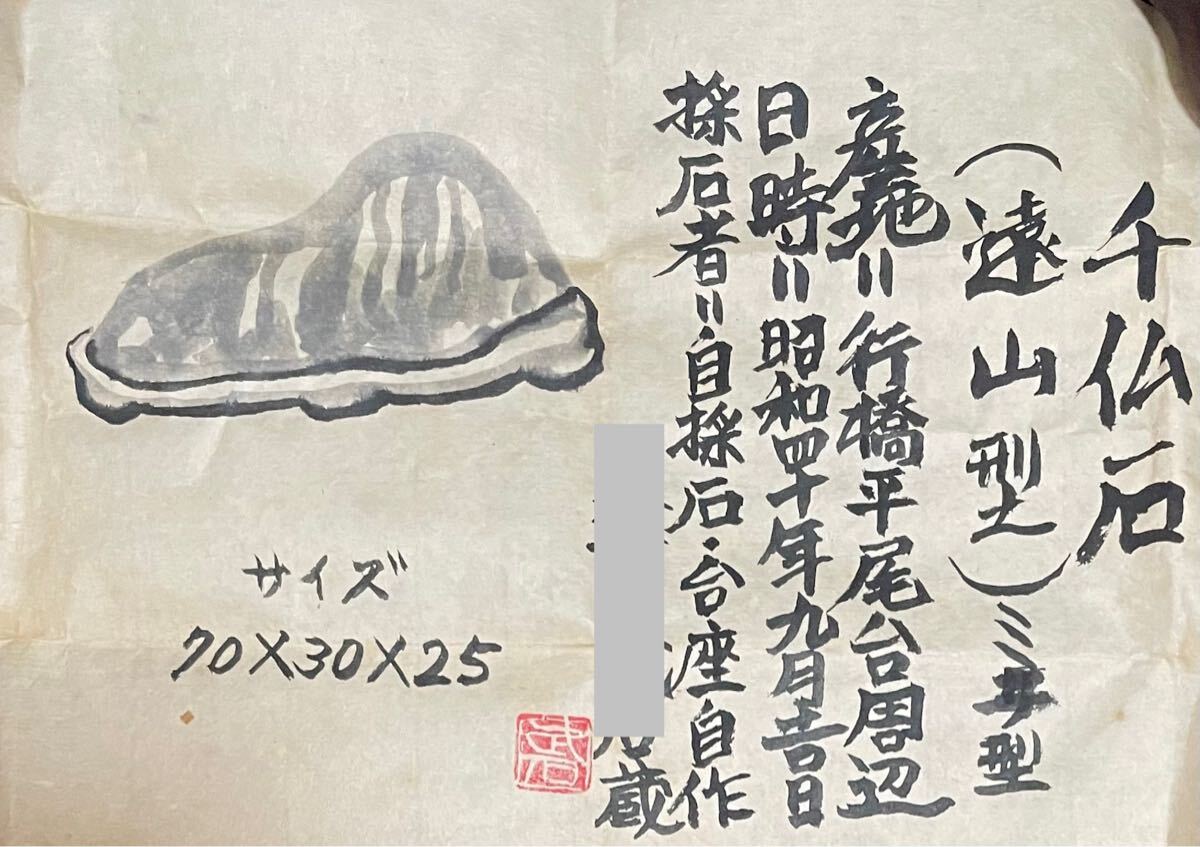 千仏石
（遠山型）ミサ型
産地＝行橋平尾台周辺
日時＝昭和四十年九月吉日
採石者＝自採石・台座自作
蔵
サイズ
70×30×25